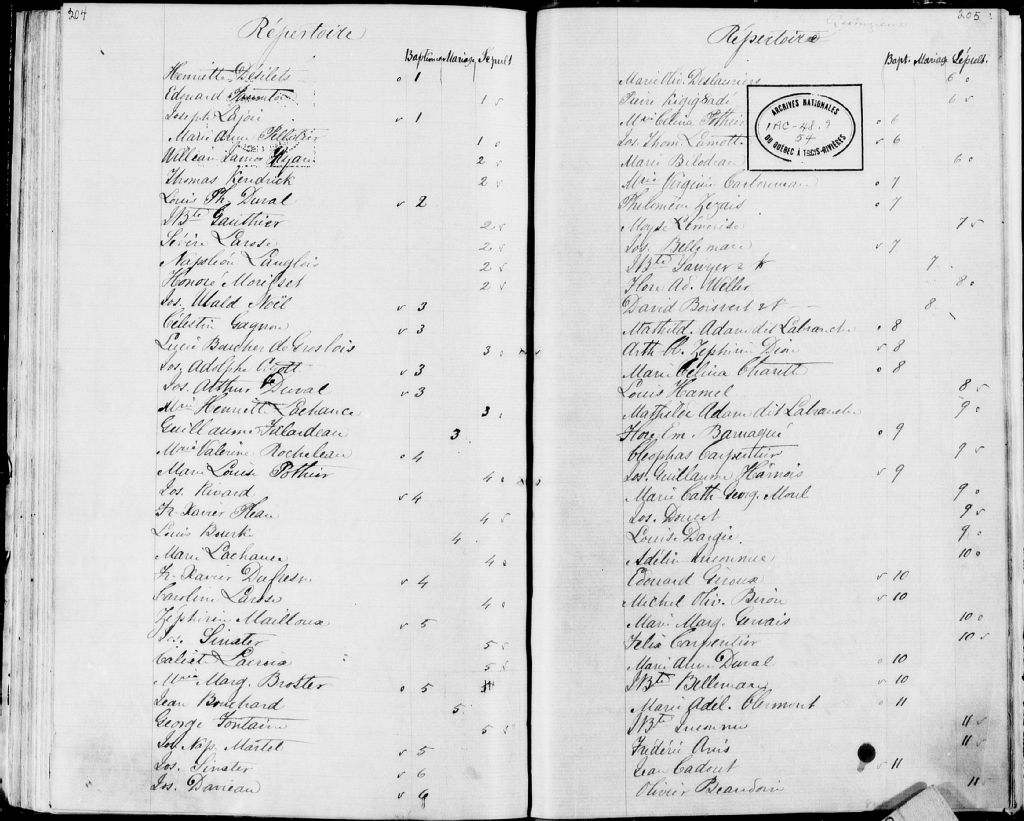 204
Répertoire
Baptêmes Mariages Sépult
Henriette Desilets o 1
Edouard 1 v
Joseph Lajoie v 1
Marie Anne Pelletier 1 o
William James Ryan 2 v
Thomas Kendrick 2 v
Louis Ph. Duval v 2
J Bte Gauthier 2 v
Sévère Larose 2 v
Napoléon Langlois 2 v
Honoré Morisset 2 v
Jos. Wald Noël v 3
Célestin Gagnon v 3
Lucie Boucher de Grosbois 3
Jos. Adolphe v 3
Jos. Arthur Duval v 3
Mrie Henriett Lachance 3
Guillaume 3
Mrie Valérine Rocheleau o 4
Marie Louise Pothier 4 o
Jos. Rivard v 4
Fr Xavier 4 v
Louis Bourk 4
Marie Lachance 4 o
Fr. Xavier v 4
Caroline Larose 4 o
Zéphirin Mailloux v 5
Jos. Sinater 5 v
Calixt Lacroix 5 v
Mrie Marg. Broster o 5
Jean Bouchard 5
George Fontaine 5 v
Jos Nap. Martel v 5
Jos. Sinater v 6
Jos. Daveau v 6
205
Répertoire
Bapt. Mariag Sépult.
Marie Oliv. Deslauriers 6 o
Pierre 6 v
Mrie Célina Pothier o 6
Jos. Thom. Lamott v 6
Marie Bilodeau 6 o
Mrie Virginie Carbonneau o 7
Philomène o 7
Moyse Lemerise 7 v
Jos. Bellemare v 7
J Bte Sawyer 7
Flore Ad. Weller 8 o
David Boisvert 8
Mathild. Adam dit Labranche o 8
Arth Ol. Zéphirin Dion v 8
Marie Célina Charett o 8
Louis Hamel 8 v
Mathilde Adam dit Labranche 9 o
Flore Em. Barnaqué o 9
Cléophas Carpentier 9 v
Jos. Guillaume Harnois v 9
Marie Cath Georg. Morel 9 o
Jos. Doucet 9 v
Louise Daigle 9 o
Adélin Inconnue 10 o
Edouard Giroux v 10
Michel Oliv. Biron v 10
Marie Marg. Gervais 10 o
Félix Carpentier 10 v
Marie Anne Duval o 10
J Bte Bellemare v 10
Marie Adél. Clermont o 11
J Bte Inconnu 11 v
Frédéric 11 v
Jean Cadoret v 11
Olivier Beaudoin 11 v
ARCHIVES NATIONALES
1 MC-48.9
54
DU QUÉBEC À TROIS-RIVIÈRES